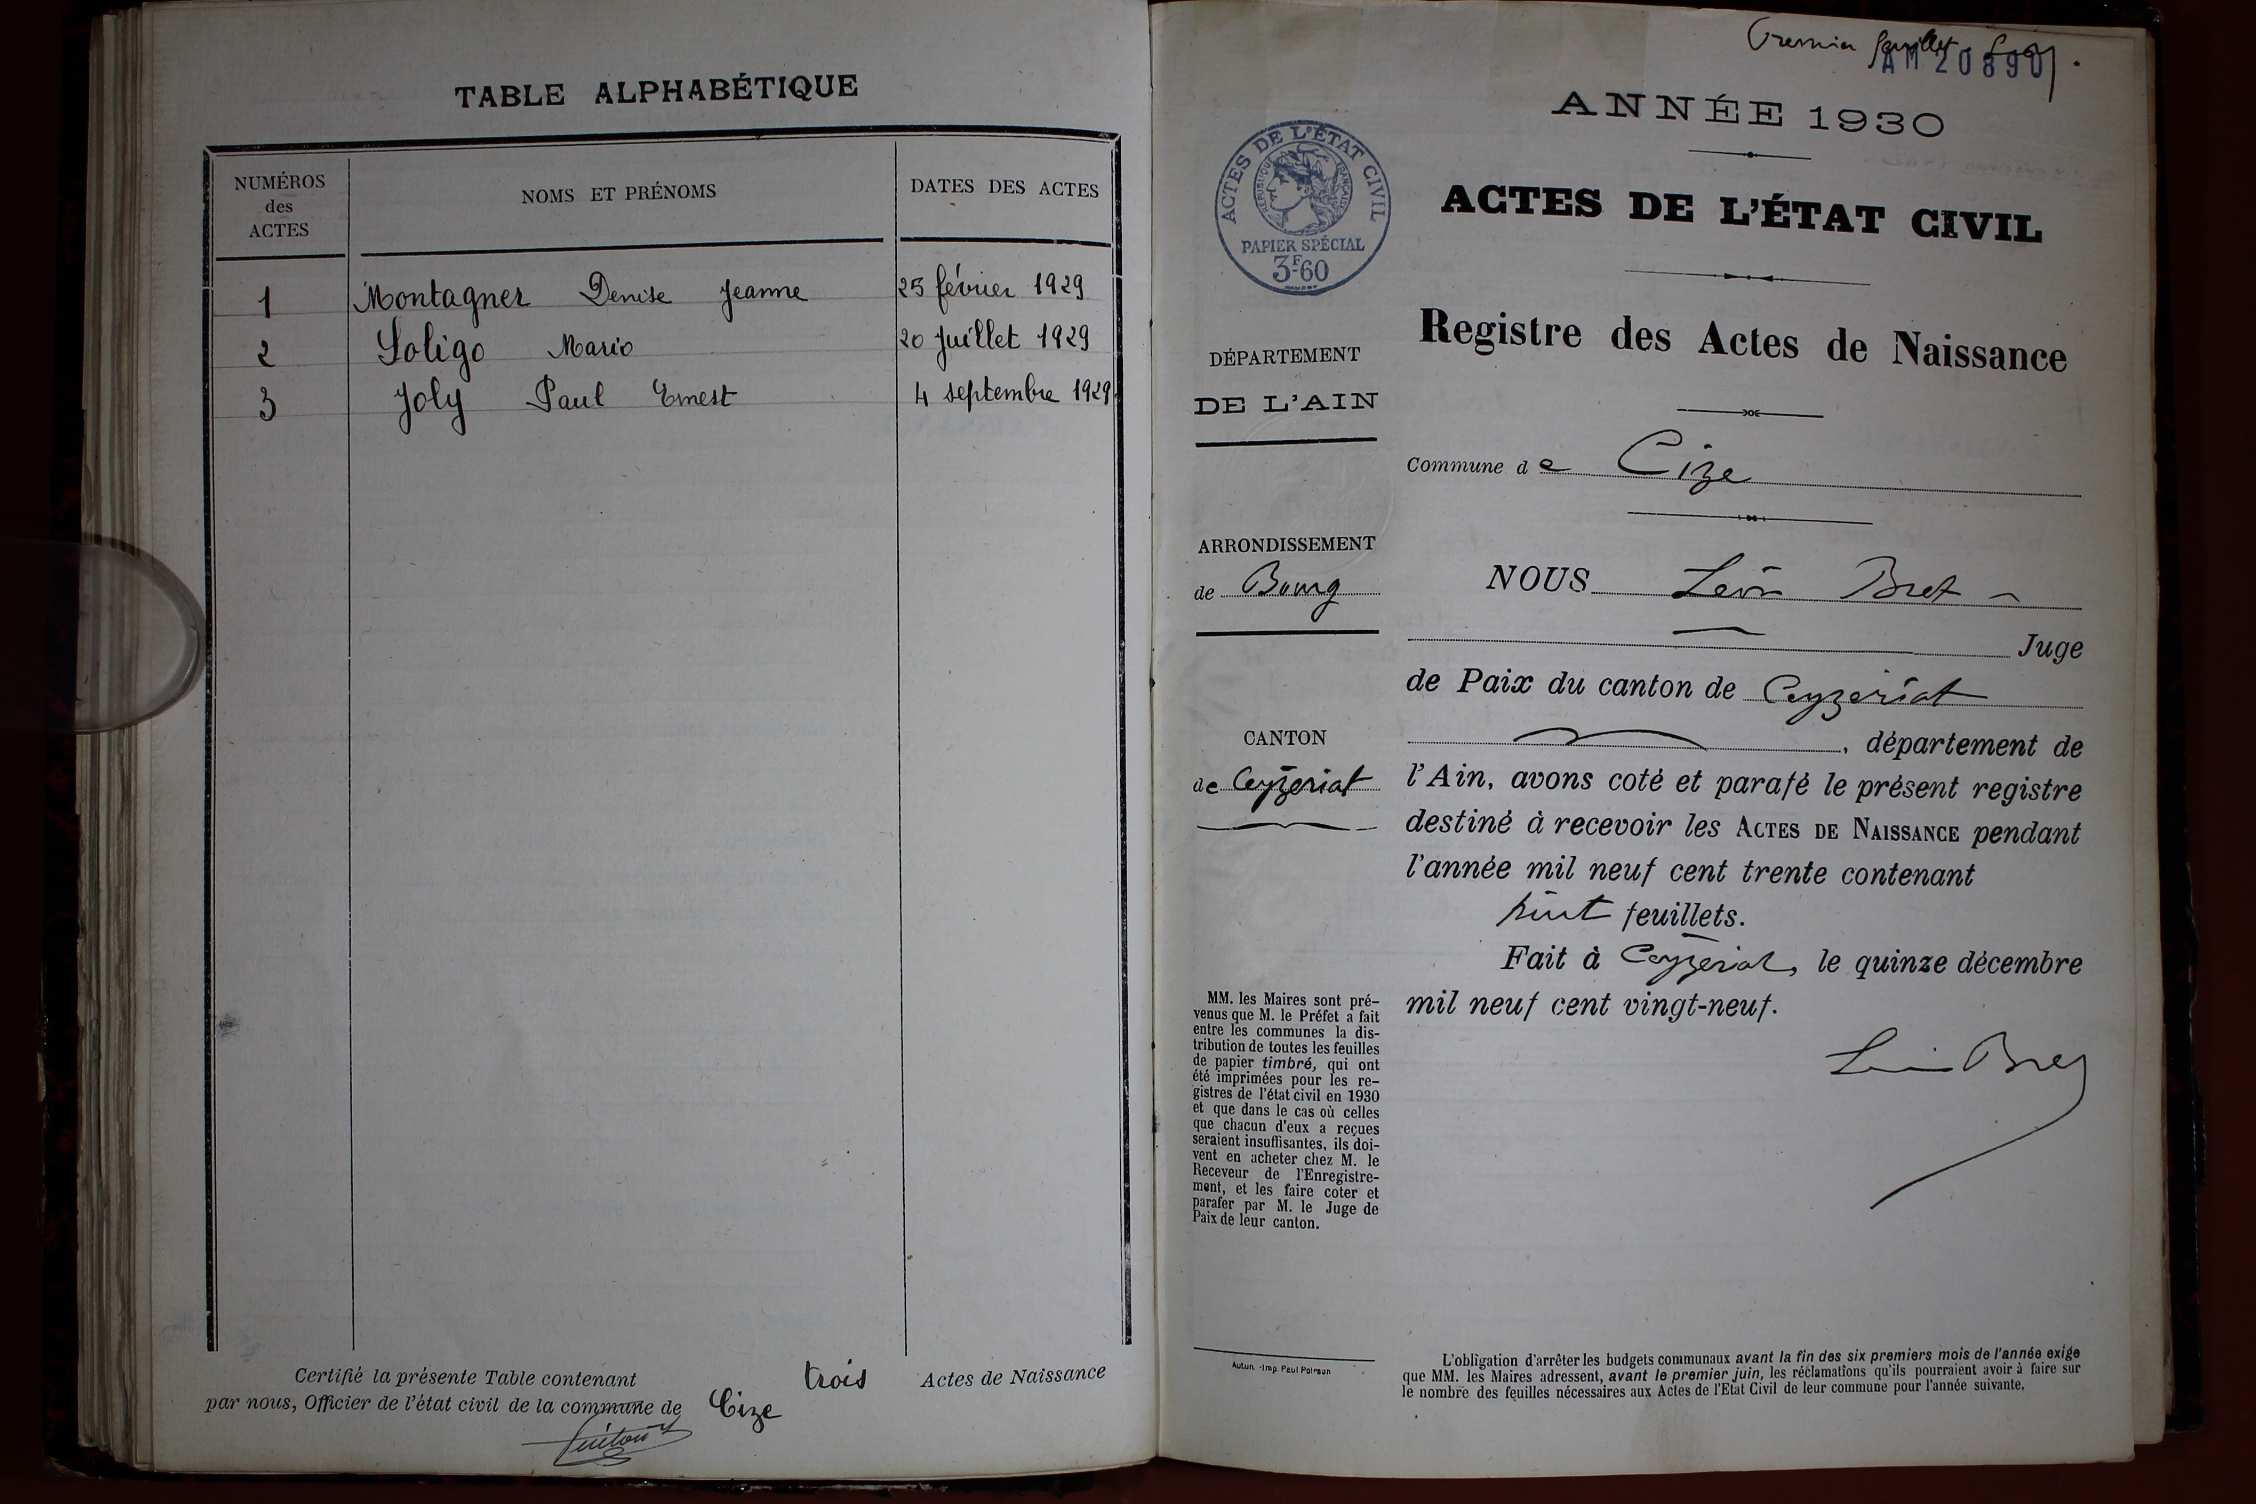 TABLE ALPHABÉTIQUE
NUMÉROS
des
ACTES
NOMS ET PRÉNOMS
DATES DES ACTES
1 Montagner Denise Jeanne 25 février 1929
2 Soligo Mario 20 Juillet 1929
3 Joly Paul Ernest 4 septembre 1929
Certifié la présente Table contenant trois Actes de Naissance
par nous, Officier de l'état civil de la commune de Cize
Premier feuillet.
AM 20890
ANNÉE 1930
ACTES DE L'ÉTAT CIVIL
RÉPUBLIQUE FRANÇAISE
PAPIER SPÉCIAL
3F60
ACTES DE L'ÉTAT CIVIL
Registre des Actes de Naissance
DÉPARTEMENT
DE L'AIN
Commune de Cize
ARRONDISSEMENT
de Bourg
CANTON
de Ceyzeriat
NOUS Léon Bret
Juge
de Paix du canton de Ceyzeriat
, département de
l'Ain, avons coté et parafé le présent registre
destiné à recevoir les ACTES DE NAISSANCE pendant
l'année mil neuf cent trente contenant
huit feuillets.
Fait à Ceyzeriat, le quinze décembre
mil neuf cent vingt-neuf.
Léon Bret
MM. les Maires sont pré-
venus que M. le Préfet a fait
entre les communes la dis-
tribution de toutes les feuilles
de papier timbré, qui ont
été imprimées pour les re-
gistres de l'état civil en 1930
et que dans le cas où celles
que chacun d'eux a reçues
seraient insuffisantes, ils doi-
vent en acheter chez M. le
Receveur de l'Enregistre-
ment, et les faire coter et
parafer par M. le Juge de
Paix de leur canton.
Autun. - Imp. Paul Poirson
L'obligation d'arrêter les budgets communaux avant la fin des six premiers mois de l'année exige
que MM. les Maires adressent, avant le premier juin, les réclamations qu'ils pourraient avoir à faire sur
le nombre des feuilles nécessaires aux Actes de l'Etat Civil de leur commune pour l'année suivante.